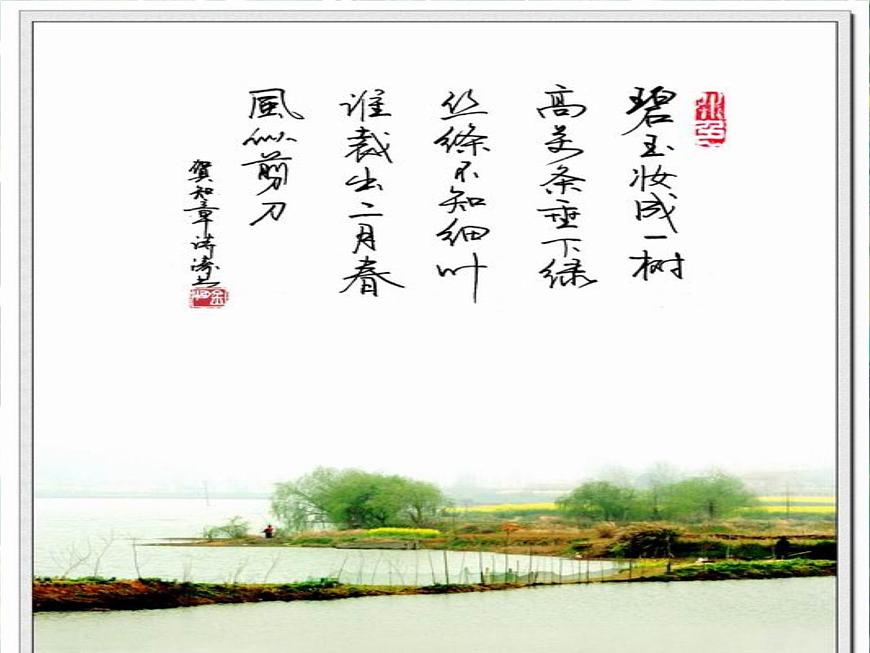 碧玉妆成一树
高万条垂下绿
丝絛不知细叶
谁裁出二月春
風似剪刀
賀知章诗涛书